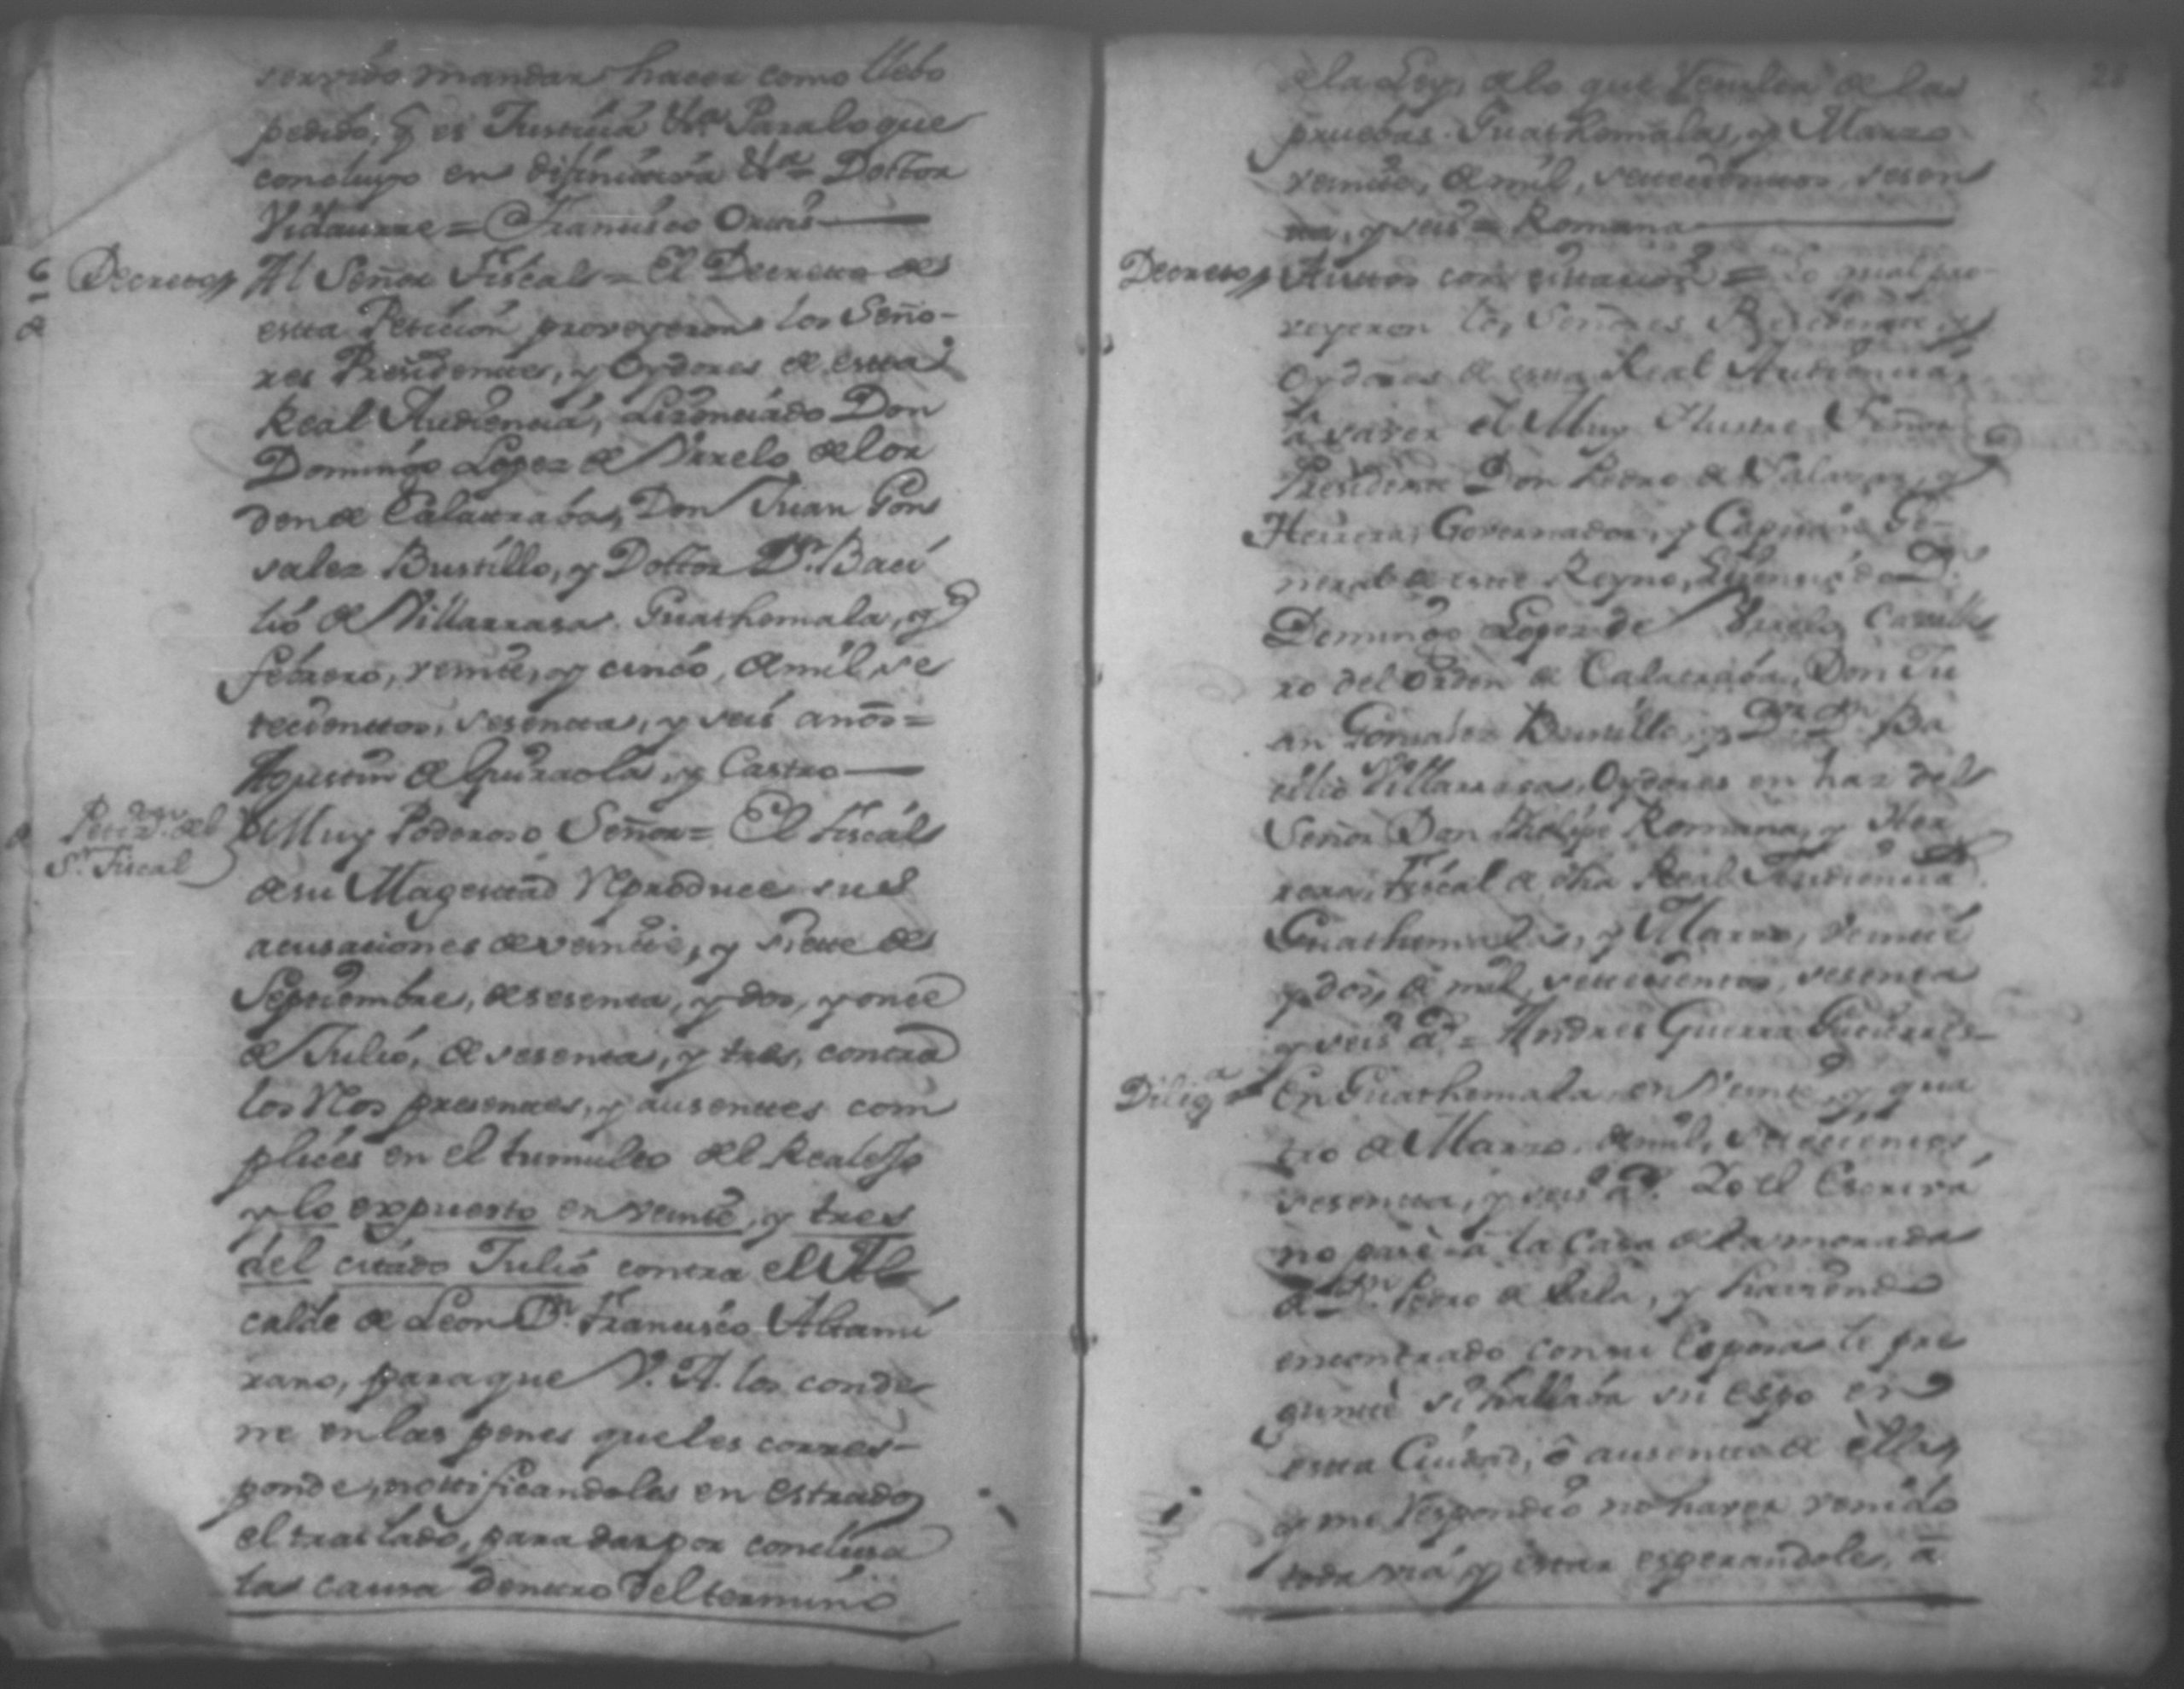 servido mandar hacer como llebo
pedido, q̃ es Justicia &a. Para lo que
concluyo en difinitiva &a = Doctor
Vidaurre = Francisco Orttis
Decreto
Al Señor Fiscal = El Decretto de
estta Peticion proveyeron los Seño-
res Presidentte, y Oydores de estta
Real Audiencia, Lizenciado Don
Domingo Lopez de Urrelo del or
den de Calatraba, Don Juan Gon
salez Bustillo, y Doctor Dn. Baci
lio de Villarrasa. Guathemala, y
febrero, veinte, y cinco, de mil, se
tecienttos, sesentta, y seis anõs =
Agustin de Guiraola, y Castro
Petizon. del
Sr. Fiscal
Muy Poderoso Señor = El Fiscal
de su Magesttad Reproduce sus
acusaciones de veintte, y siette de
Septiembre, de sesenta, y dos, y once
de Julio, de sesenta, y tres, contra
los Reos presenttes, y ausenttes com
plices en el tumulto del Realejo
y lo expuesto en veinte, y tres
del cittado Julio contra el Al
calde de Leon Dn. Francisco Altami
rano, para que V. A. los conde
ne en las penas que les corres-
ponde, nottificandoles en estrados
el traslado, para dar por conclusa
la causa denttro del termino
de la Ley, de lo que Resulta de las
pruebas. Guathemala, y Marzo
veintte, de mil, settecienttos, sesen
ta, y seis = Romana
Decreto
Auttos con cittacion = Lo qual pro-
veyeron los Señores Presidente, y
Oydores de esta Real Audiencia,
a saver el Muy Ilustre Señor
Presidente Don Pedro de Salazar, y
Herrera, Governador, y Capitan Ge-
neral de este Reyno, Lizenciado Dn.
Domingo Lopez de Urrelo Cavalle
ro del Orden de Calatraba, Don Ju
an Gonzalez Bustillo, y Dr. Dn. Ba
cilio Villarrasa, Oydores en haz del
Señor Don Phelipe Romana, y Her
rera, Fiscal de dha Real Audiencia
Guathemala, y Marzo, veintte
y dos, de mil, settecientos, sesenta
y seis as. = Andres Guerra Gutierres
Diliga.
En Guathemala en veinte, y qua
tro de Marzo, de mil, settecientos
sesentta, y seis as. Yo el Escriva
no pasè a la Casa de la morada
de Dn. Pedro de Lula, y haviendo
encontrado con su Esposa le pre
guntè si hallaba su espo en
esta Ciudad, ô ausente de èlla,
y me Respondiò no haver venido
toda via, y estar esperandole, â